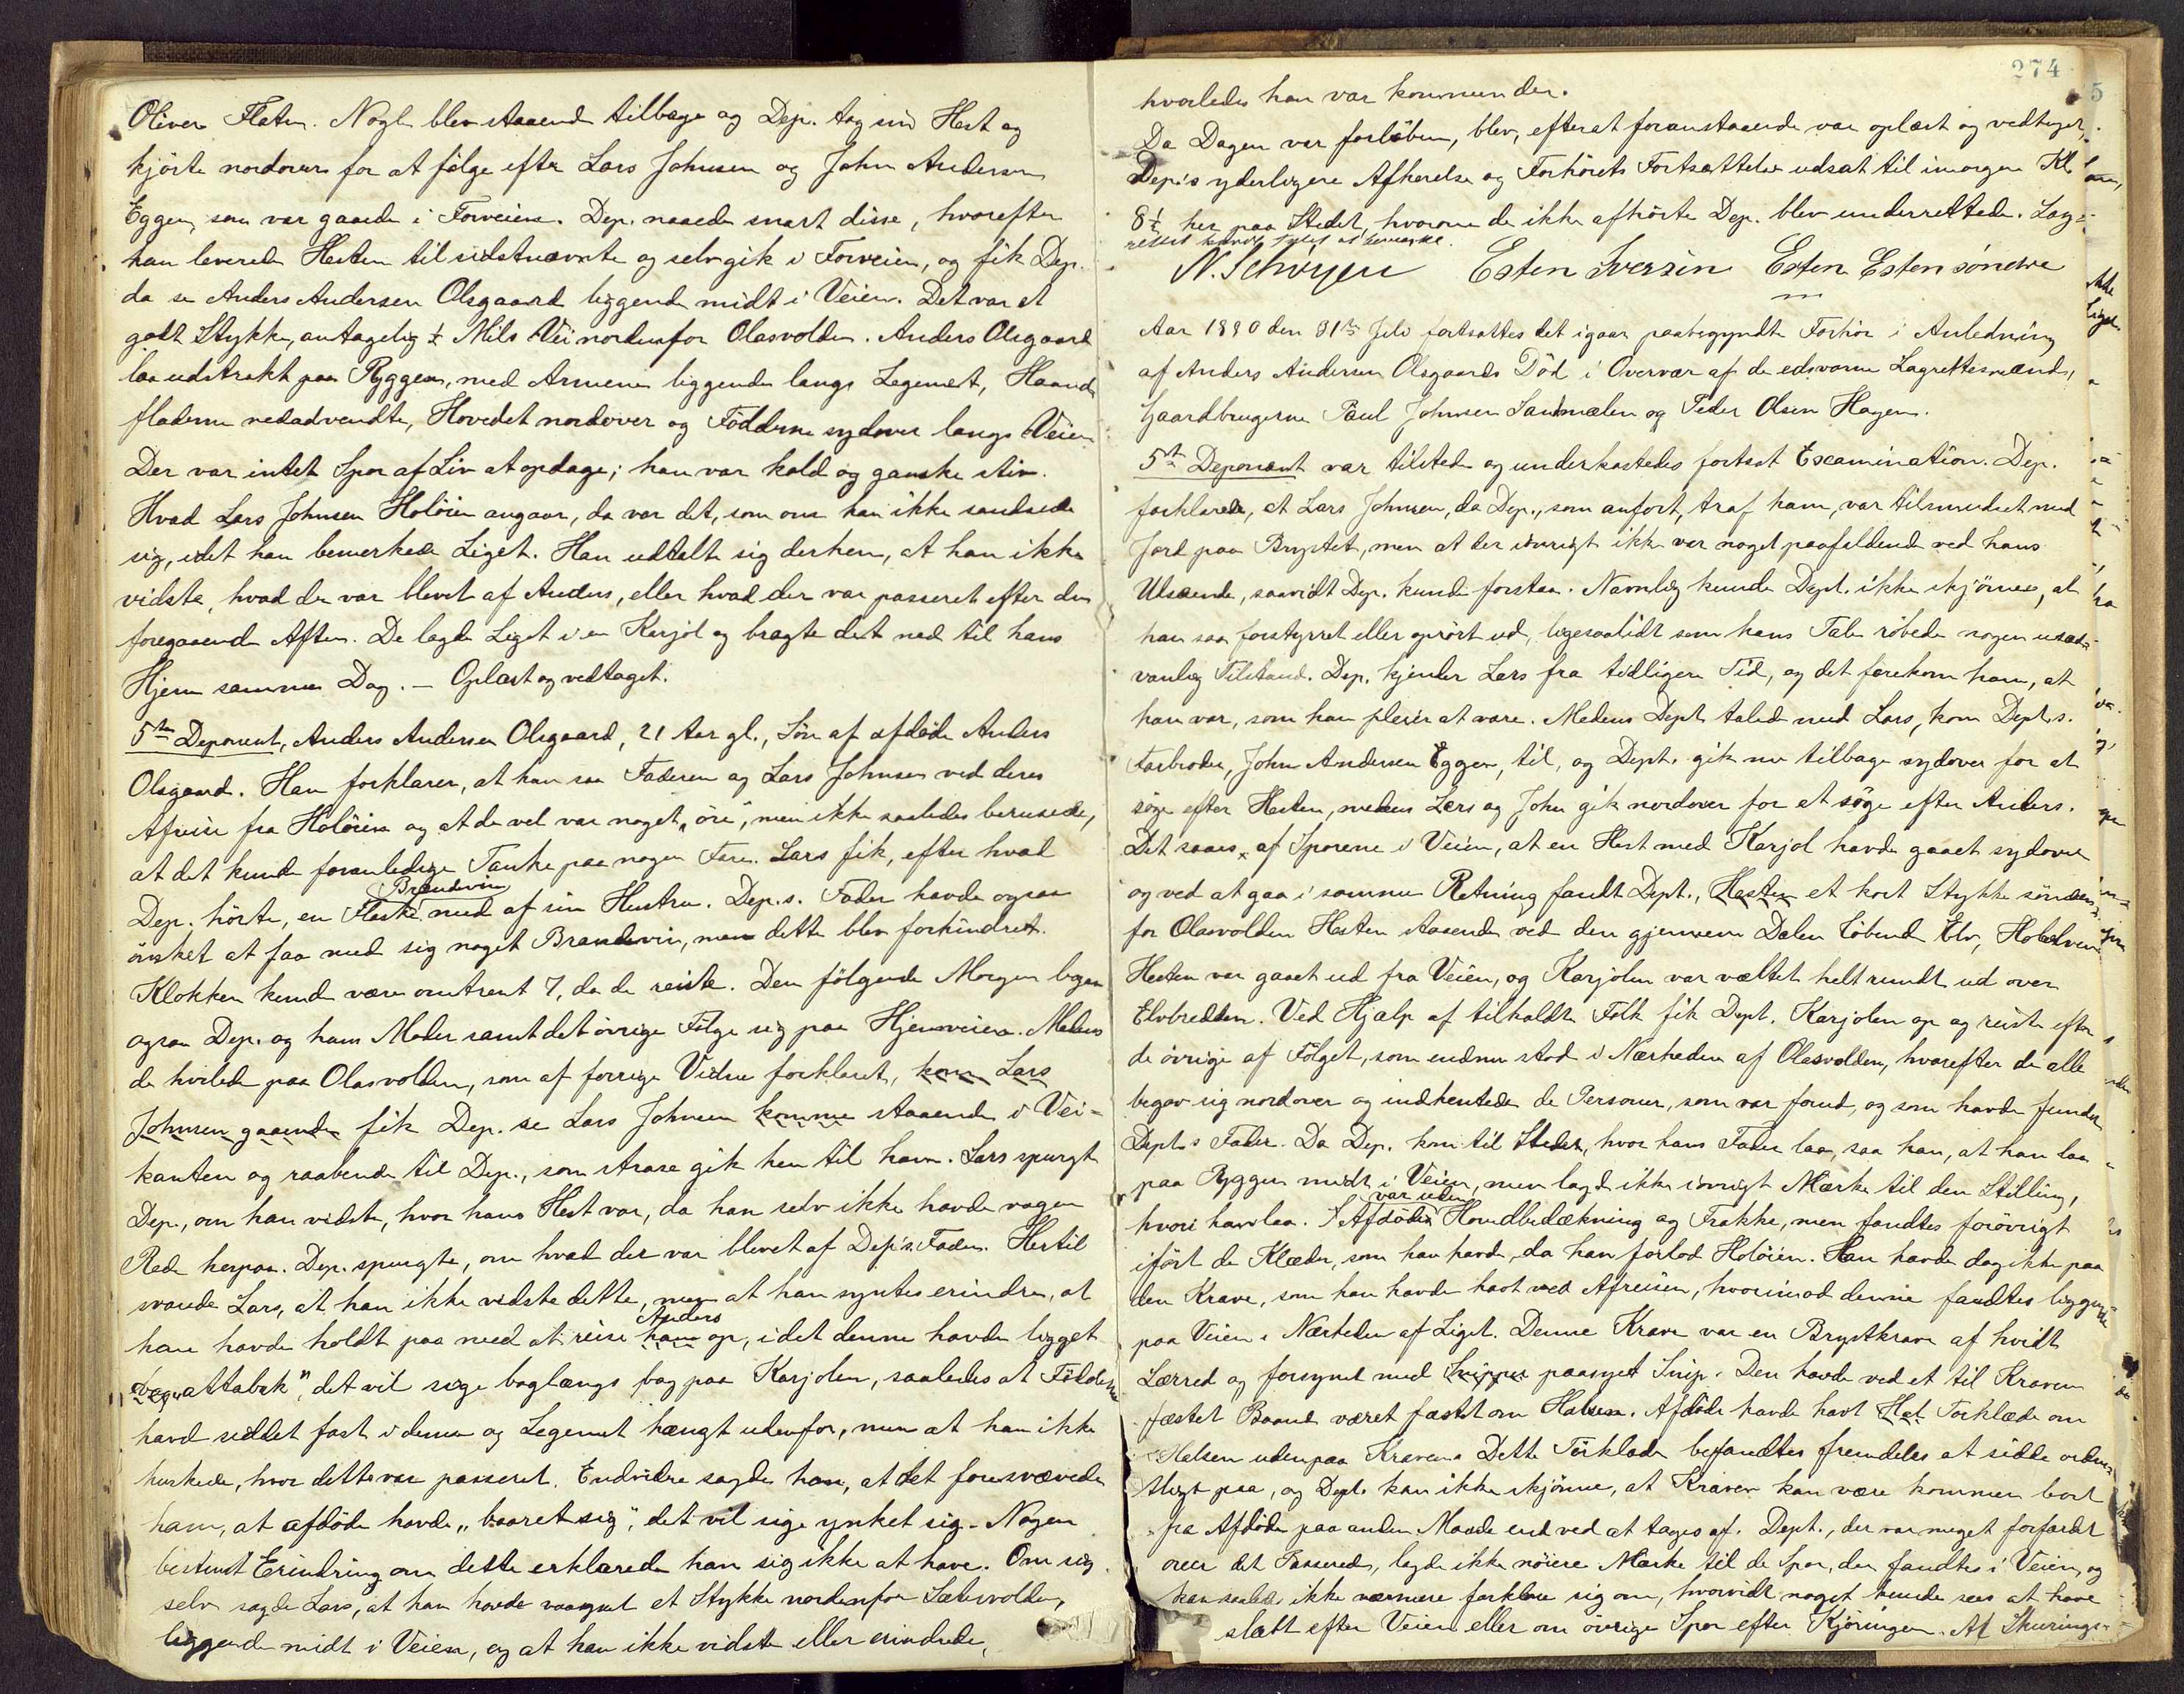 Oliver Flaten. Nogle blev staaende tilbage og Dep. tog sin Hest og
kjörte nordover for at fölge efter Lars Johnsen og John Andersen
Eggen, som var gaaede i Forveien. Dep. naaede snart disse, hvorefter
han leverede Hesten til sidstnævnte og selv gik i Forveien, og fik Dep.
da se Anders Andersen Olsgaard liggende midt i Veien. Det var et
godt Stykke, antagelig Mils Vei nordenfor Olasvolden. Anders Olsgaard
laa udstrakt paa Ryggen, med Armene liggende langs Legemet, Haand
fladerne nedadvendte, Hovedet nordover og Födderne sydover langs Veien
Der var intet Spor af Liv at opdage; han var kold og ganske stiv.
Hvad Lars Johnsen Holöien angaar, da var det, som om han ikke sandsede
sig, idet han bemerkede Liget. Han udtalte sig derhen, at han ikke
vidste, hvad der var blevet af Anders, eller hvad der var passeret efter den
foregaaende Aften. De lagde Liget i en Karjol og bragte det ned til hans
Hjem samme Dag. — Oplæst og vedtaget.
5te Deponent, Anders Andersen Olsgaard, 21 Aar gl., Sön af afdöde Anders
Olsgaard. Han forklarer, at han saa Faderen og Lars Johnsen ved deres
Afreise fra Holöien og at de vel var noget "öre", men ikke saaledes berusede,
at det kunde foranledige Tanke paa nogen Fare. Lars fik, efter hvad
Brændevin
Dep. hörte, en Flaske med af sin Hustru. Dep.s. Fader havde ogsaa
önsket at faa med sig noget Brændevin, men dette blev forhindret.
Klokken kunde være omtrent 7, da de reiste. Den fölgende Morgen begav
ogsaa Dep. og hans Moder samt det övrige Fölge sig paa Hjemveien. Medens
de hvilede paa Olasvolden, som af forrige Vidne forklaret, kom Lars
Johnsen gaaende fik Dep. se Lars Johnsen komme staaende i Vei-
kanten og raabende til Dep., som strax gik hen til ham. Lars spurgte
Dep., om han vidste, hvor hans Hest var, da han selv ikke havde nogen
Rede herpaa. Dep. spurgte, om hvad der var blevet af Dep's. Fader. Hertil
svarede Lars, at han ikke vidste dette, men at han syntes erindre, at
Anders
han havde holdt paa med at reise ham op, idet denne havde ligget
"attabak", det vil sige baglængs bag paa Karjolen, saaledes at Födderne
havd siddet fast i denne og Legemet hængt udenfor, men at han ikke
huskede, hvor dette var passeret. Endvidere sagde han, at det foresvævede
ham, at afdöde havde "baaret sig", det vil sige ynket sig. Nogen
bestemt Erindring om dette erklærede han sig ikke at have. Om sig
selv sagde Lars, at han havde vaagnet et Stykke nordenfor Sætervolden,
liggende midt i Veien, og at han ikke vidste eller erindrede,
274
5
hvorledes han var kommen der.
Da Dagen var forlöben, blev, efterat foranstaaende var oplæst og vedtaget,
Dep's yderligere Afhörelse og Forhörets Fortsættelse udsat til imorgen Kl
8½ her paa Stedet, hvorom de ikke afhörte Dep. blev underrettede. Lag-
rettet havde Intet at bemærke.
N. Schöyen Esten Iversen Esten Estensöndre
Aar 1890 den 31te Juli fortsattes det igaar paabegyndte Forhör i Anledning
af Anders Andersen Olsgaards Död i Overvær af de edsvorne Lagrettesmænd,
Gaardbrugerne Paul Johnsen Sandmælen og Peder Olsen Hagen.
5te Deponent var tilstede og underkastedes fortsat Examination. Dep.
forklarede, at Lars Johnsen, da Dep., som anfört, traf ham, var tilsmudset med
Jord paa Brystet, men at der iövrigt ikke var noget paafaldende ved hans
Udseende, saavidt Dep. kunde forstaa. Navnlig kunde Dept. ikke skjönne, at
han saa forstyrret eller oprört ud, ligesaalidt som hans Tale röbede nogen usæd-
vanlig Tilstand. Dep. kjender Lars fra tidligere Tid, og det forekom ham, at
han var, som han pleier at være. Medens Dept. talede med Lars, kom Dept.s.
Farbroder, John Andersen Eggen, til, og Dept. gik nu tilbage sydover for at
söge efter Hesten, medens Lars og John gik nordover for at söge efter Anders.
Det saaes af Sporene i Veien, at en Hest med Karjol havde gaaet sydover
og ved at gaa i samme Retning fandt Dept., Hesten et kort Stykke sönden-
for Olasvolden Hesten staaende ved den gjennem Dalen löbende Elv, Holelven
Hesten var gaaet ud fra Veien, og Karjolen var væltet helt rundt ud over
Elvbredden. Ved Hjælp af tilkaldte Folk fik Dept. Karjolen op og reiste efter
de övrige af Fölget, som endnu stod i Nærheden af Olasvolden, hvorefter de alle
begav sig nordover og indhentede de Personer, som var forud, og som havde fundet
Dept.s Fader. Da Dep. kom til Stedet, hvor hans Fader laa, saa han, at han laa
paa Ryggen midt i Veien, men lagde ikke iövrigt Mærke til den Stilling,
var uden
hvori han laa. Afdöde Hovedbedækning og Frakke, men fandtes forövrigt
ifört de Klæder, som han havde, da han forlod Holöien. Han havde dog ikke paa
den Krave, som han havde havt ved Afreisen, hvorimod denne fandtes liggende
paa Veien i Nærheden af Liget. Denne Krave var en Brystkrave af hvidt
Lærred og forsynet med Snipper paasyet Snip. Den havde ved et til Kraven
fæstet Baand været fæstet om Halsen. Afdöde havde havt Hat Törklæde om
Halsen udenpaa Kraven. Dette Törklæde befandtes fremdeles at sidde orden-
tligt paa, og Dept. kan ikke skjönne, at Kraven kan være kommen bort
fra Afdöde paa anden Maade end ved at tages af. Dept., der var meget forfærdet
over det Passerede, lagde ikke nöiere Mærke til de Spor, der fandtes i Veien, og
kan saaledes ikke nærmere forklare sig om, hvorvidt noget kunde sees at have
slæbt efter Veien eller om övrige Spor efter Kjöringen. Af Skurings-